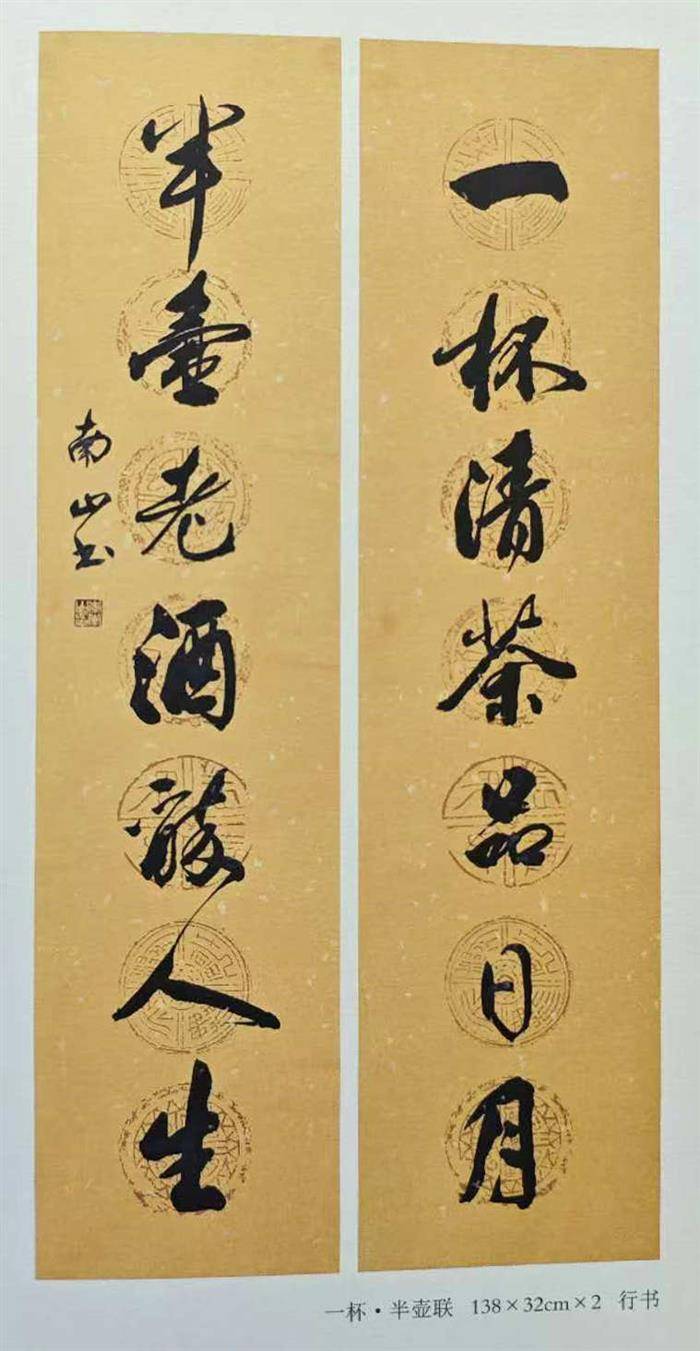 一杯清茶品日月
半壶老酒人生
南山书
一杯·半壶联 138×32cm×2 行书